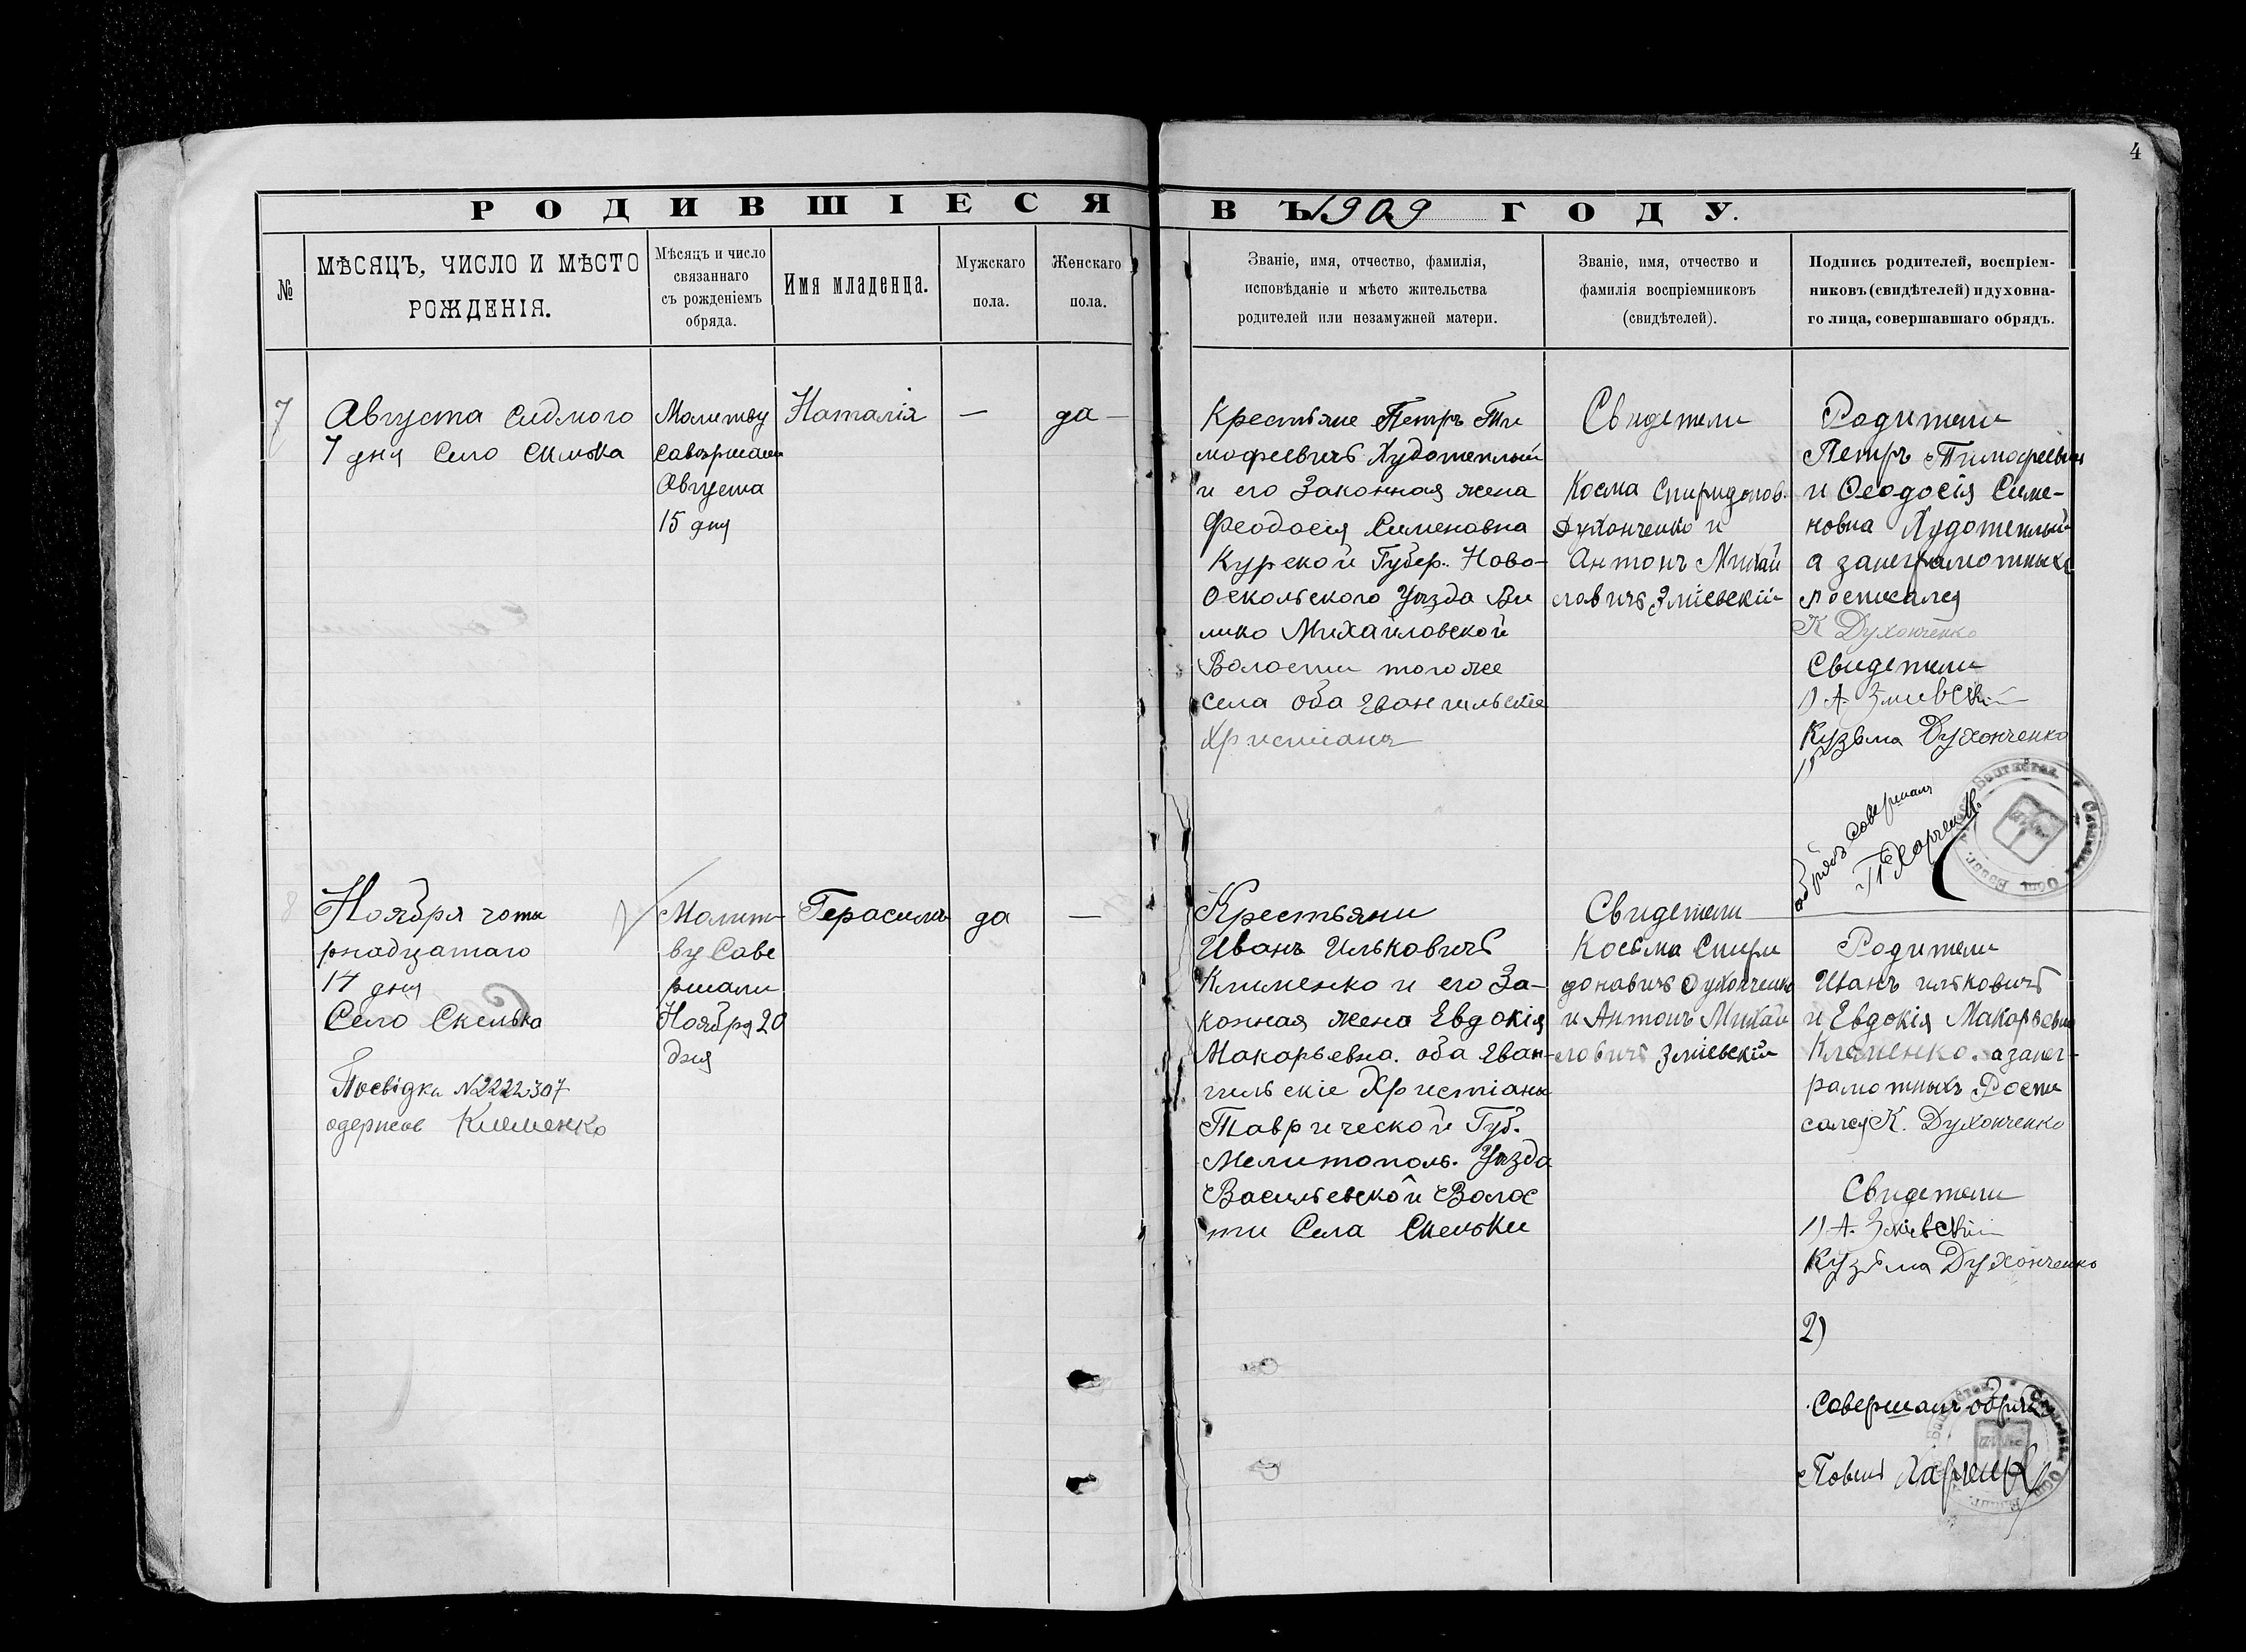 4
РОДИВШІЕСЯ ВЪ 1909 ГОДУ.
№
МѢСЯЦЪ, ЧИСЛО И МѢСТО
РОЖДЕНІЯ.
Мѣсяцъ и число
связаннаго
съ рожденіемъ
обряда.
Имя младенца.
Мужскаго
пола.
Женскаго
пола.
Званіе, имя, отчество, фамилія,
исповѣданіе и мѣсто жительства
родителей или незамужней матери.
Званіе, имя, отчество и
фамилія воспріемниковъ
(свидѣтелей).
Подпись родителей, воспріем-
никовъ (свидѣтелей) и духовна-
го лица, совершавшаго обрядъ.
7
Августа седмого
7 дня Село Скелька
Молитву
савершали
Августа
15 дня
Наталія
—
да —
Крестьяне Петръ Ти
мофеевичъ Худотеплый
и его Законная жена
Феодосія Сименовна
Курской Губер. Ново-
Оскольского Уѣзда Ви
лико Михайловской
Волости того же
села оба Евангильскіе
Християнъ
Свидетели
Косма Спиридонов.
Духонченко и
Антонъ Михай
ловичъ Зміевскій
Родители
Петръ Тимофеевич
и Феодосія Симе-
новна Худотеплый
а занеграмотныхъ
росписался
К Духонченко
Свидетели
1) А. Змиевскій
Кузьма Духонченко
обрядъ совершалъ
П Харченко
8
Ноября четы
рнадцатаго
14 дня
Село Скелька
Посвідки №2222307
одержав Клименко
Молит-
ву Саве
ршали
Ноября 20
дня
Герасимъ
да
—
Крестьяни
Иванъ Ильковичъ
Клименко и его За-
конная жена Евдокія
Макарьевна. оба Еван-
гильскіе Християны
Таврической Губ.
Мелитополь. Уѣзда
Васильевской Волос
ти Села Скельки
Свидетели
Косьма Спири
доновичъ Духонченко
и Антонъ Михай
ловичъ Зміевскій
Родители
Иванъ Ильковичъ
и Евдокія Макарьевна
Клименко. а занег-
рамотныхъ Роспи
сался К. Духонченко
Свидетели
1) А. Зміевскій
Кузьма Духонченко
2)
Совершалъ обрядъ
Павелъ Харченко